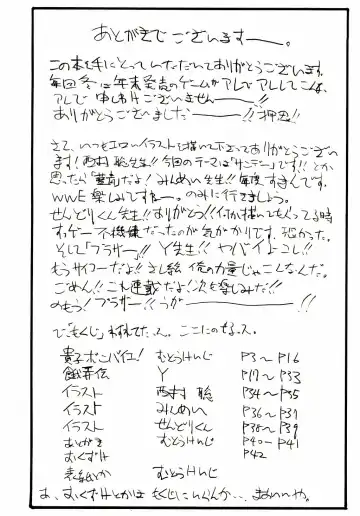 あとがきでございますー。
この本を手にとっていただいてありがとうございます。
毎回冬は年末発売のゲームがアレでアレしてこんな、
アレで申しわけございませんーー!!
ありがとうございましたーー!! 押忍!!
さて、いつもエロいイラストを描いて下さってありがとうござい
ます!西村聡先生!!今回のテーマは「サンデー」です!!とか
思ったら「夏莉」だよ!みんめいへ先生!!毎度すまんです。
WWE楽しみですねー。のみに行きましょう。
せんどりくん先生!!ありがとう!!イラストか描いてもらってる時
すっげー不機嫌だったのが気がかりです。恐かった。
そして「ブラザー」!!Y先生!!ヤバイよコレ!!
もうサイコーだよ!!さし絵 俺の力量じゃこんなんだ。
ごめん!!これ連載だよ!次も楽しみだ!!
のもう!ブラザー!!うがーーー!!
で「もくじ」わすれてた…ス。ここにのせるっス。
貴子ボンバイエ! むとうけいじ P3〜P16
餓弄伝 Y P17〜P33
イラスト 西村聡 P34〜P35
イラスト みんめいへ P36〜P37
イラスト せんどりくん P38〜P39
あとがき むとうけいじ P40〜P41
おくずけ P42
表紙とか むとうけいじ
あ、おくずけとかはもくじにいらんか…まぁいいや。